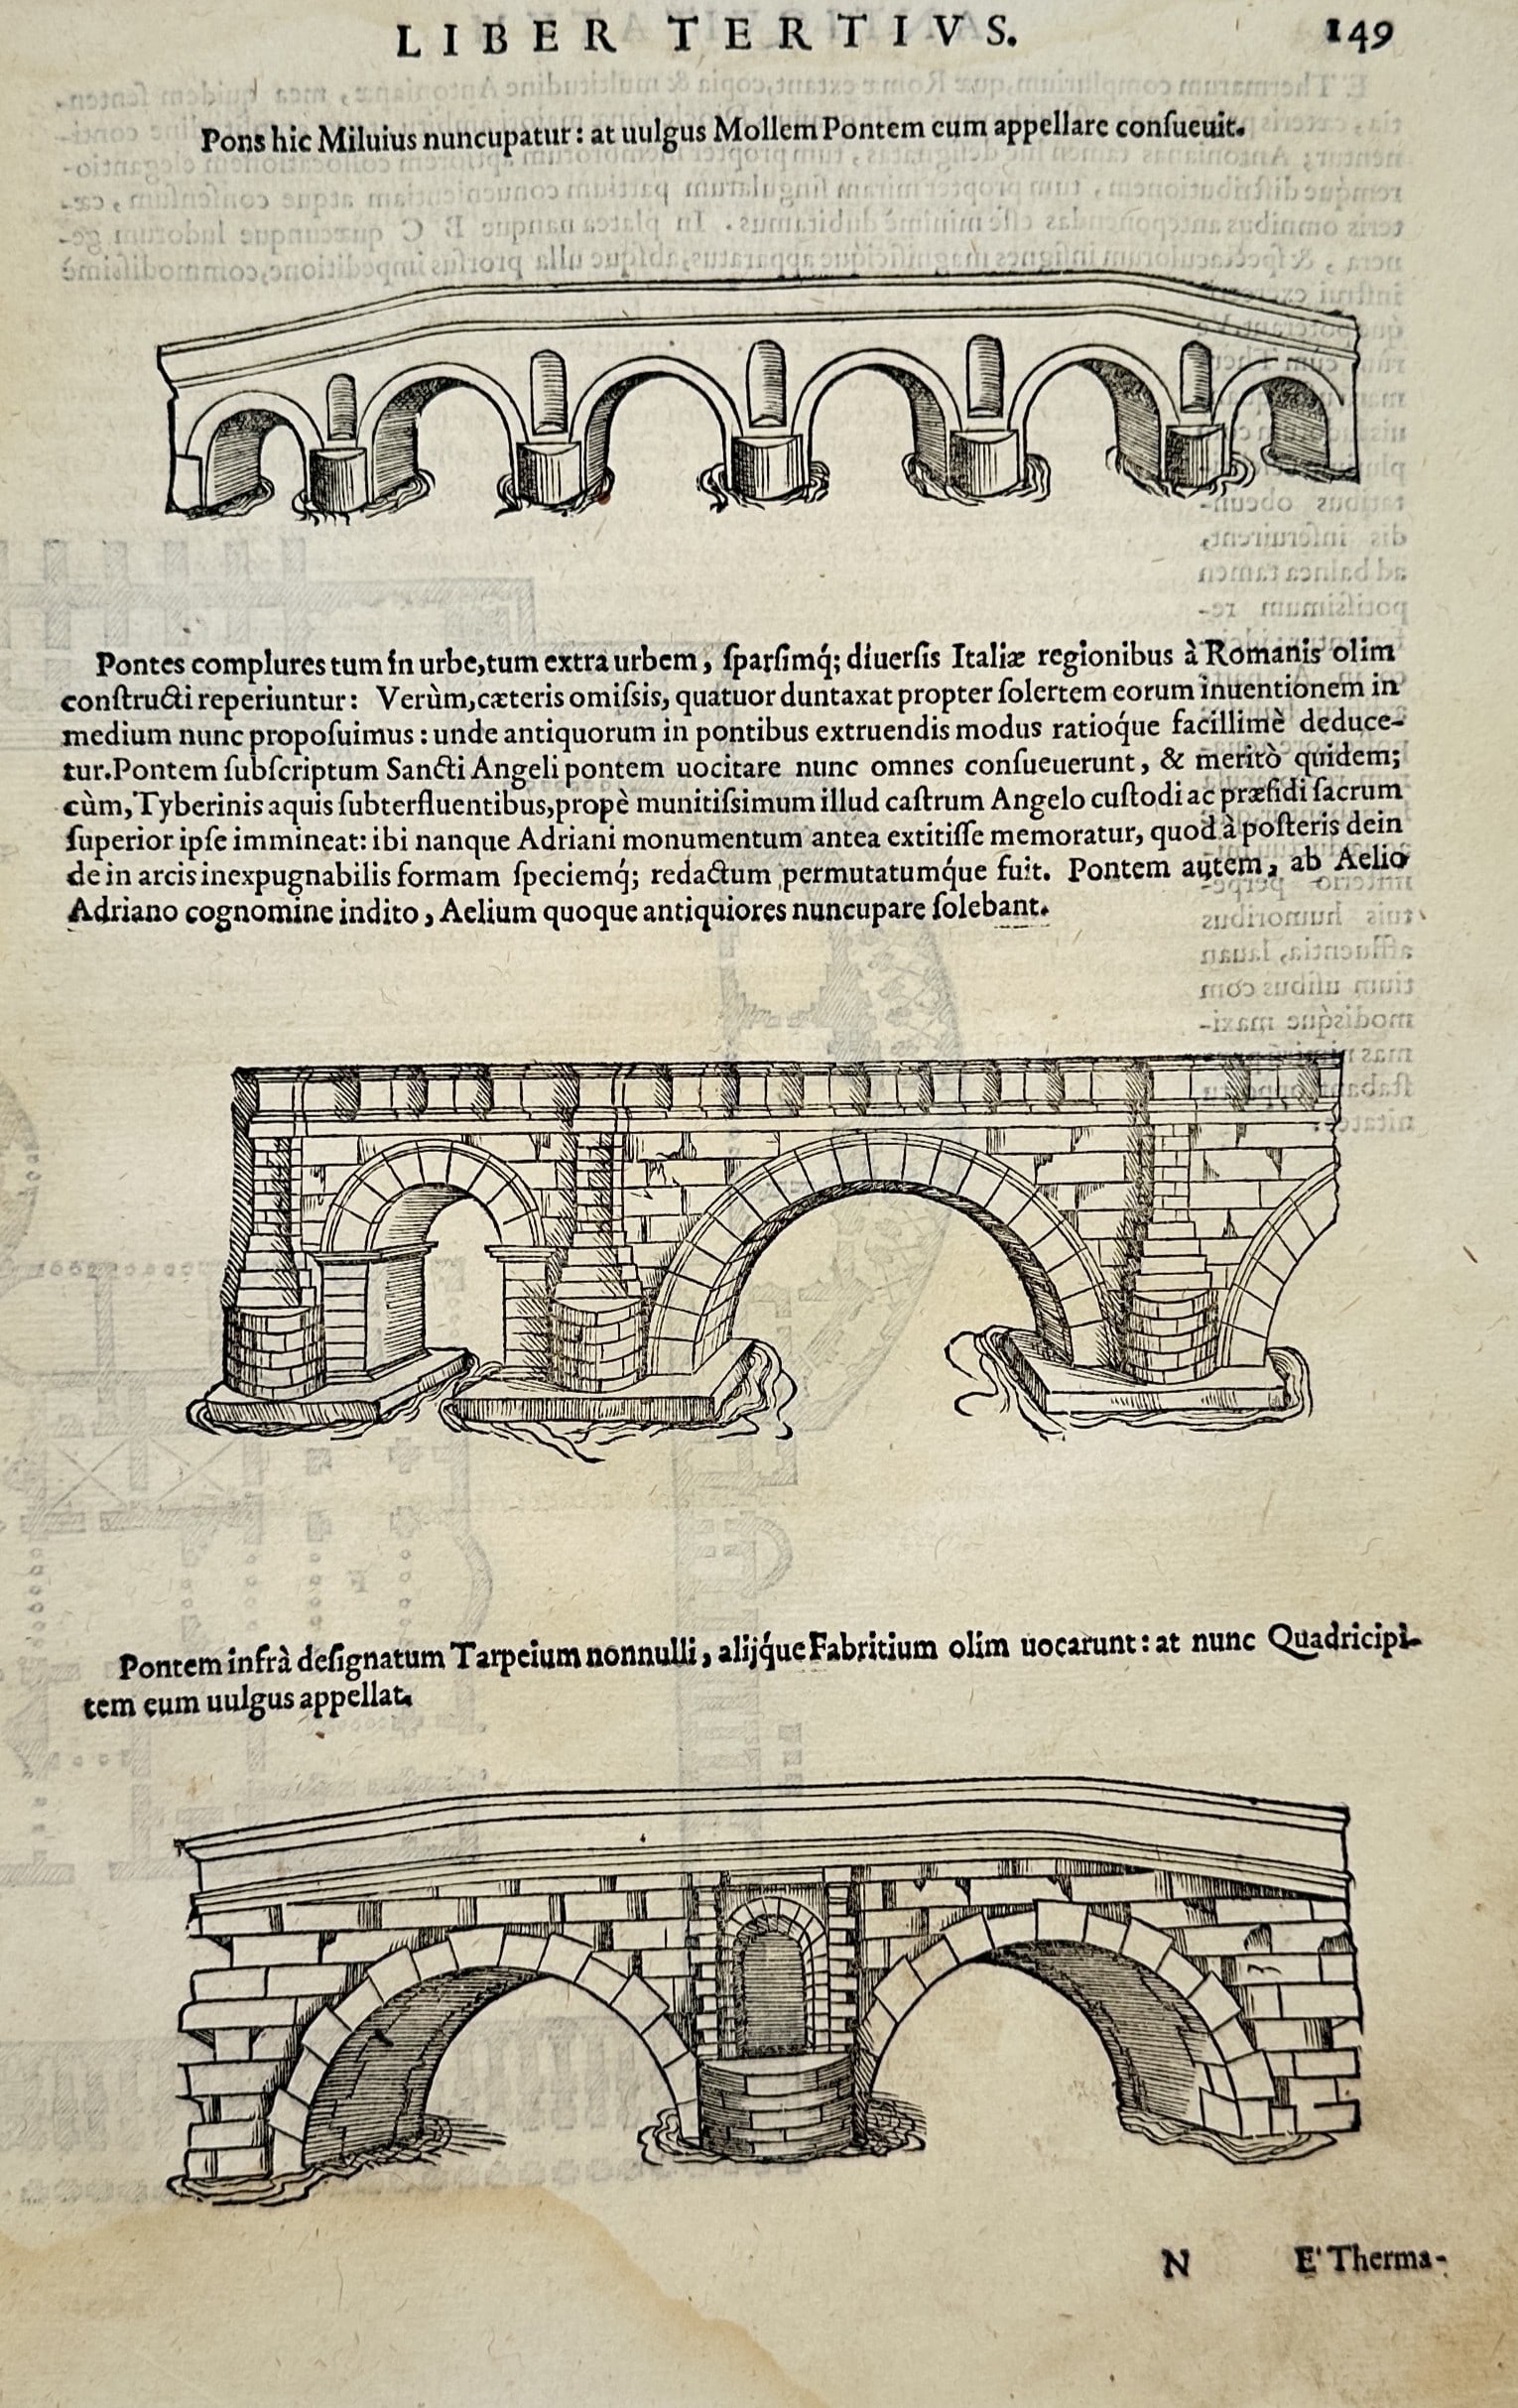 LIBER TERTIVS. 149
Pons hic Miluius nuncupatur: at uulgus Mollem Pontem eum appellare conſueuit.
Pontes complures tum in urbe, tum extra urbem, ſparſimq́; diuerſis Italiæ regionibus à Romanis olim
conſtructi reperiuntur: Verùm, cæteris omiſsis, quatuor duntaxat propter ſolertem eorum inuentionem in
medium nunc propoſuimus: unde antiquorum in pontibus extruendis modus ratioq́ue facillimè deduce-
tur. Pontem ſubſcriptum Sancti Angeli pontem uocitare nunc omnes conſueuerunt, & meritò quidem;
cùm, Tyberinis aquis ſubterfluentibus, propè munitiſsimum illud caſtrum Angelo cuſtodi ac præſidi ſacrum
ſuperior ipſe immineat: ibi nanque Adriani monumentum antea extitiſſe memoratur, quod à poſteris dein
de in arcis inexpugnabilis formam ſpeciemq́; redactum permutatumq́ue fuit. Pontem autem, ab Aelio
Adriano cognomine indito, Aelium quoque antiquiores nuncupare ſolebant.
Pontem infrà deſignatum Tarpeium nonnulli, alijq́ue Fabritium olim uocarunt: at nunc Quadricipi-
tem eum uulgus appellat.
N E' Therma-